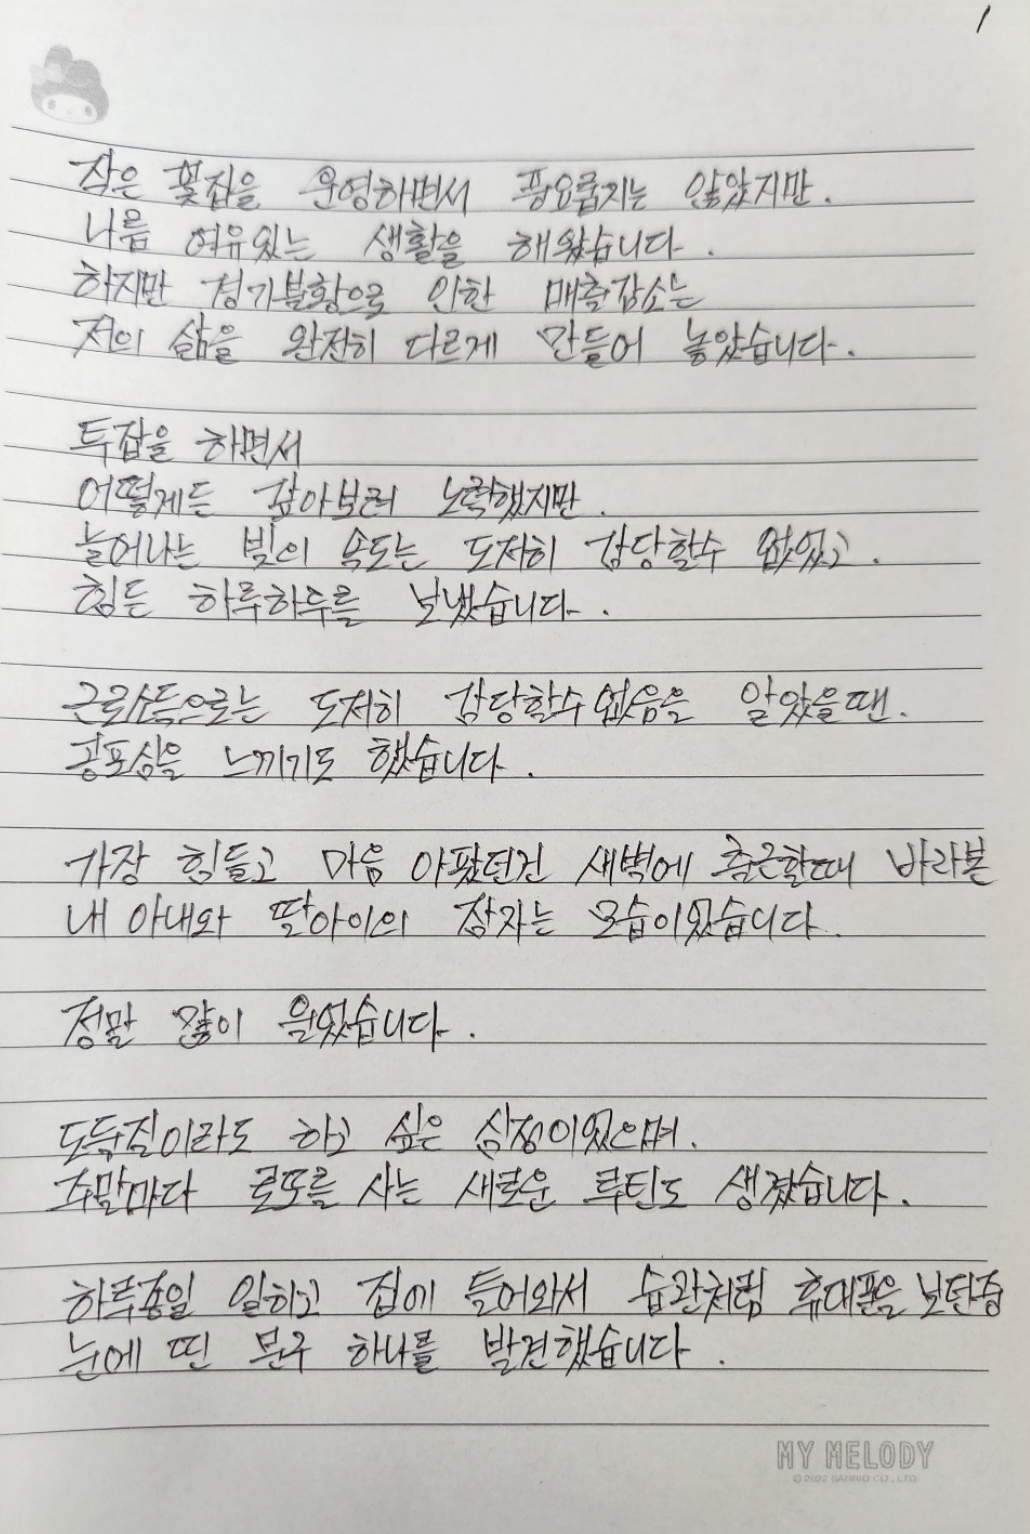 1
작은 꽃집을 운영하면서 풍요롭지는 않았지만.
나름 여유있는 생활을 해왔습니다.
하지만 경기불황으로 인한 매출감소는
저의 삶을 완전히 다르게 만들어 놓았습니다.
투잡을 하면서
어떻게든 갚아보려 노력했지만.
늘어나는 빚의 속도는 도저히 감당할수 없었고.
힘든 하루하루를 보냈습니다.
근로소득으로는 도저히 감당할수없음을 알았을땐.
공포심을 느끼기도 했습니다.
가장 힘들고 마음 아팠던건 새벽에 출근할때 바라본
내 아내와 딸아이의 잠자는 모습이였습니다.
정말 많이 울었습니다.
도둑질이라도 하고 싶은 심정이였으며.
주말마다 로또를 사는 새로운 루틴도 생겼습니다.
하루종일 일하고 집에 들어와서 습관처럼 휴대폰을 보던중
눈에 띤 문구 하나를 발견했습니다.
MY MELODY
© 2022 SANRIO CO., LTD